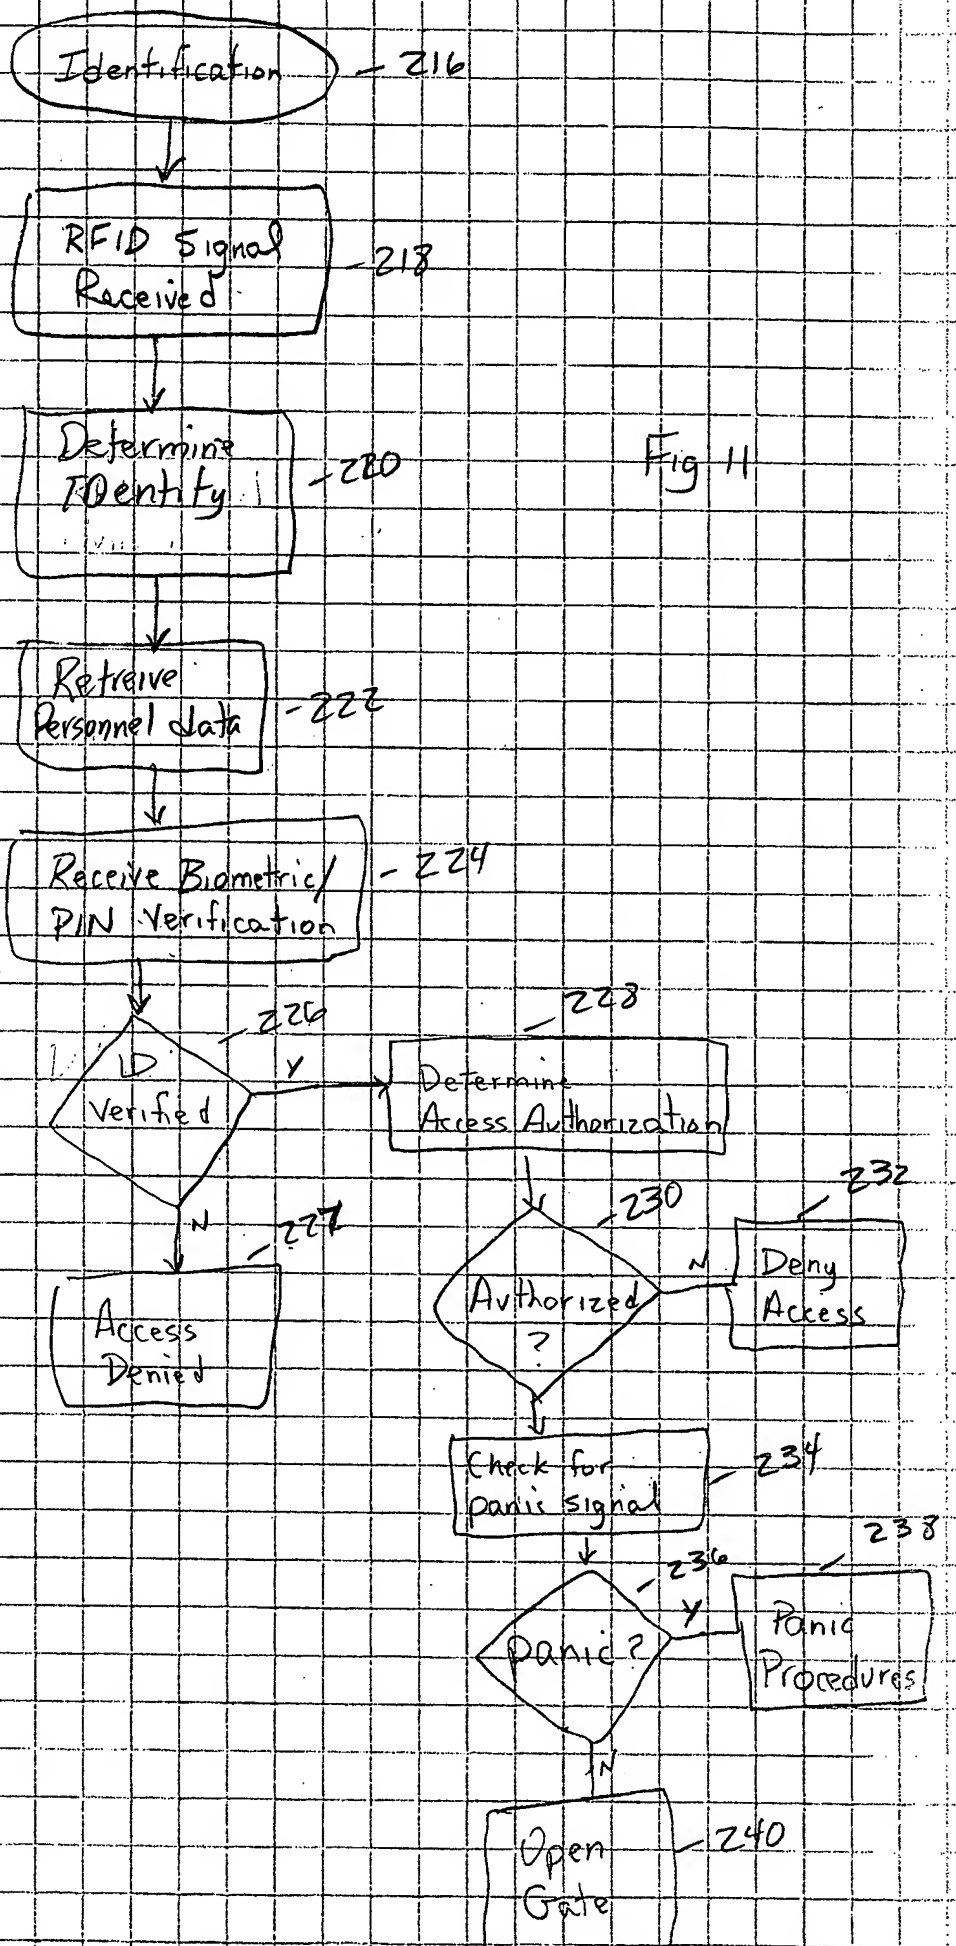 Identification
216
RFID Signal
Received
218
Determine
IDentity
220
Fig 11
Retreive
Personnel data
222
Receive Biometric/
PIN Verification
224
ID
Verified
226
Y
228
Determine
Access Authorization
N
227
Access
Denied
230
Authorized
?
N
232
Deny
Access
Check for
panic signal
234
236
panic?
Y
238
Panic
Procedures
N
Open
Gate
240